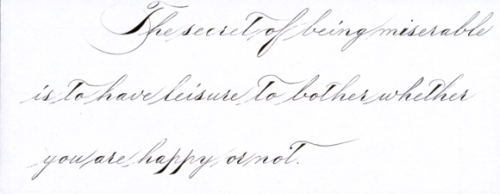 The secret of being miserable
is to have leisure to bother whether
you are happy or not.